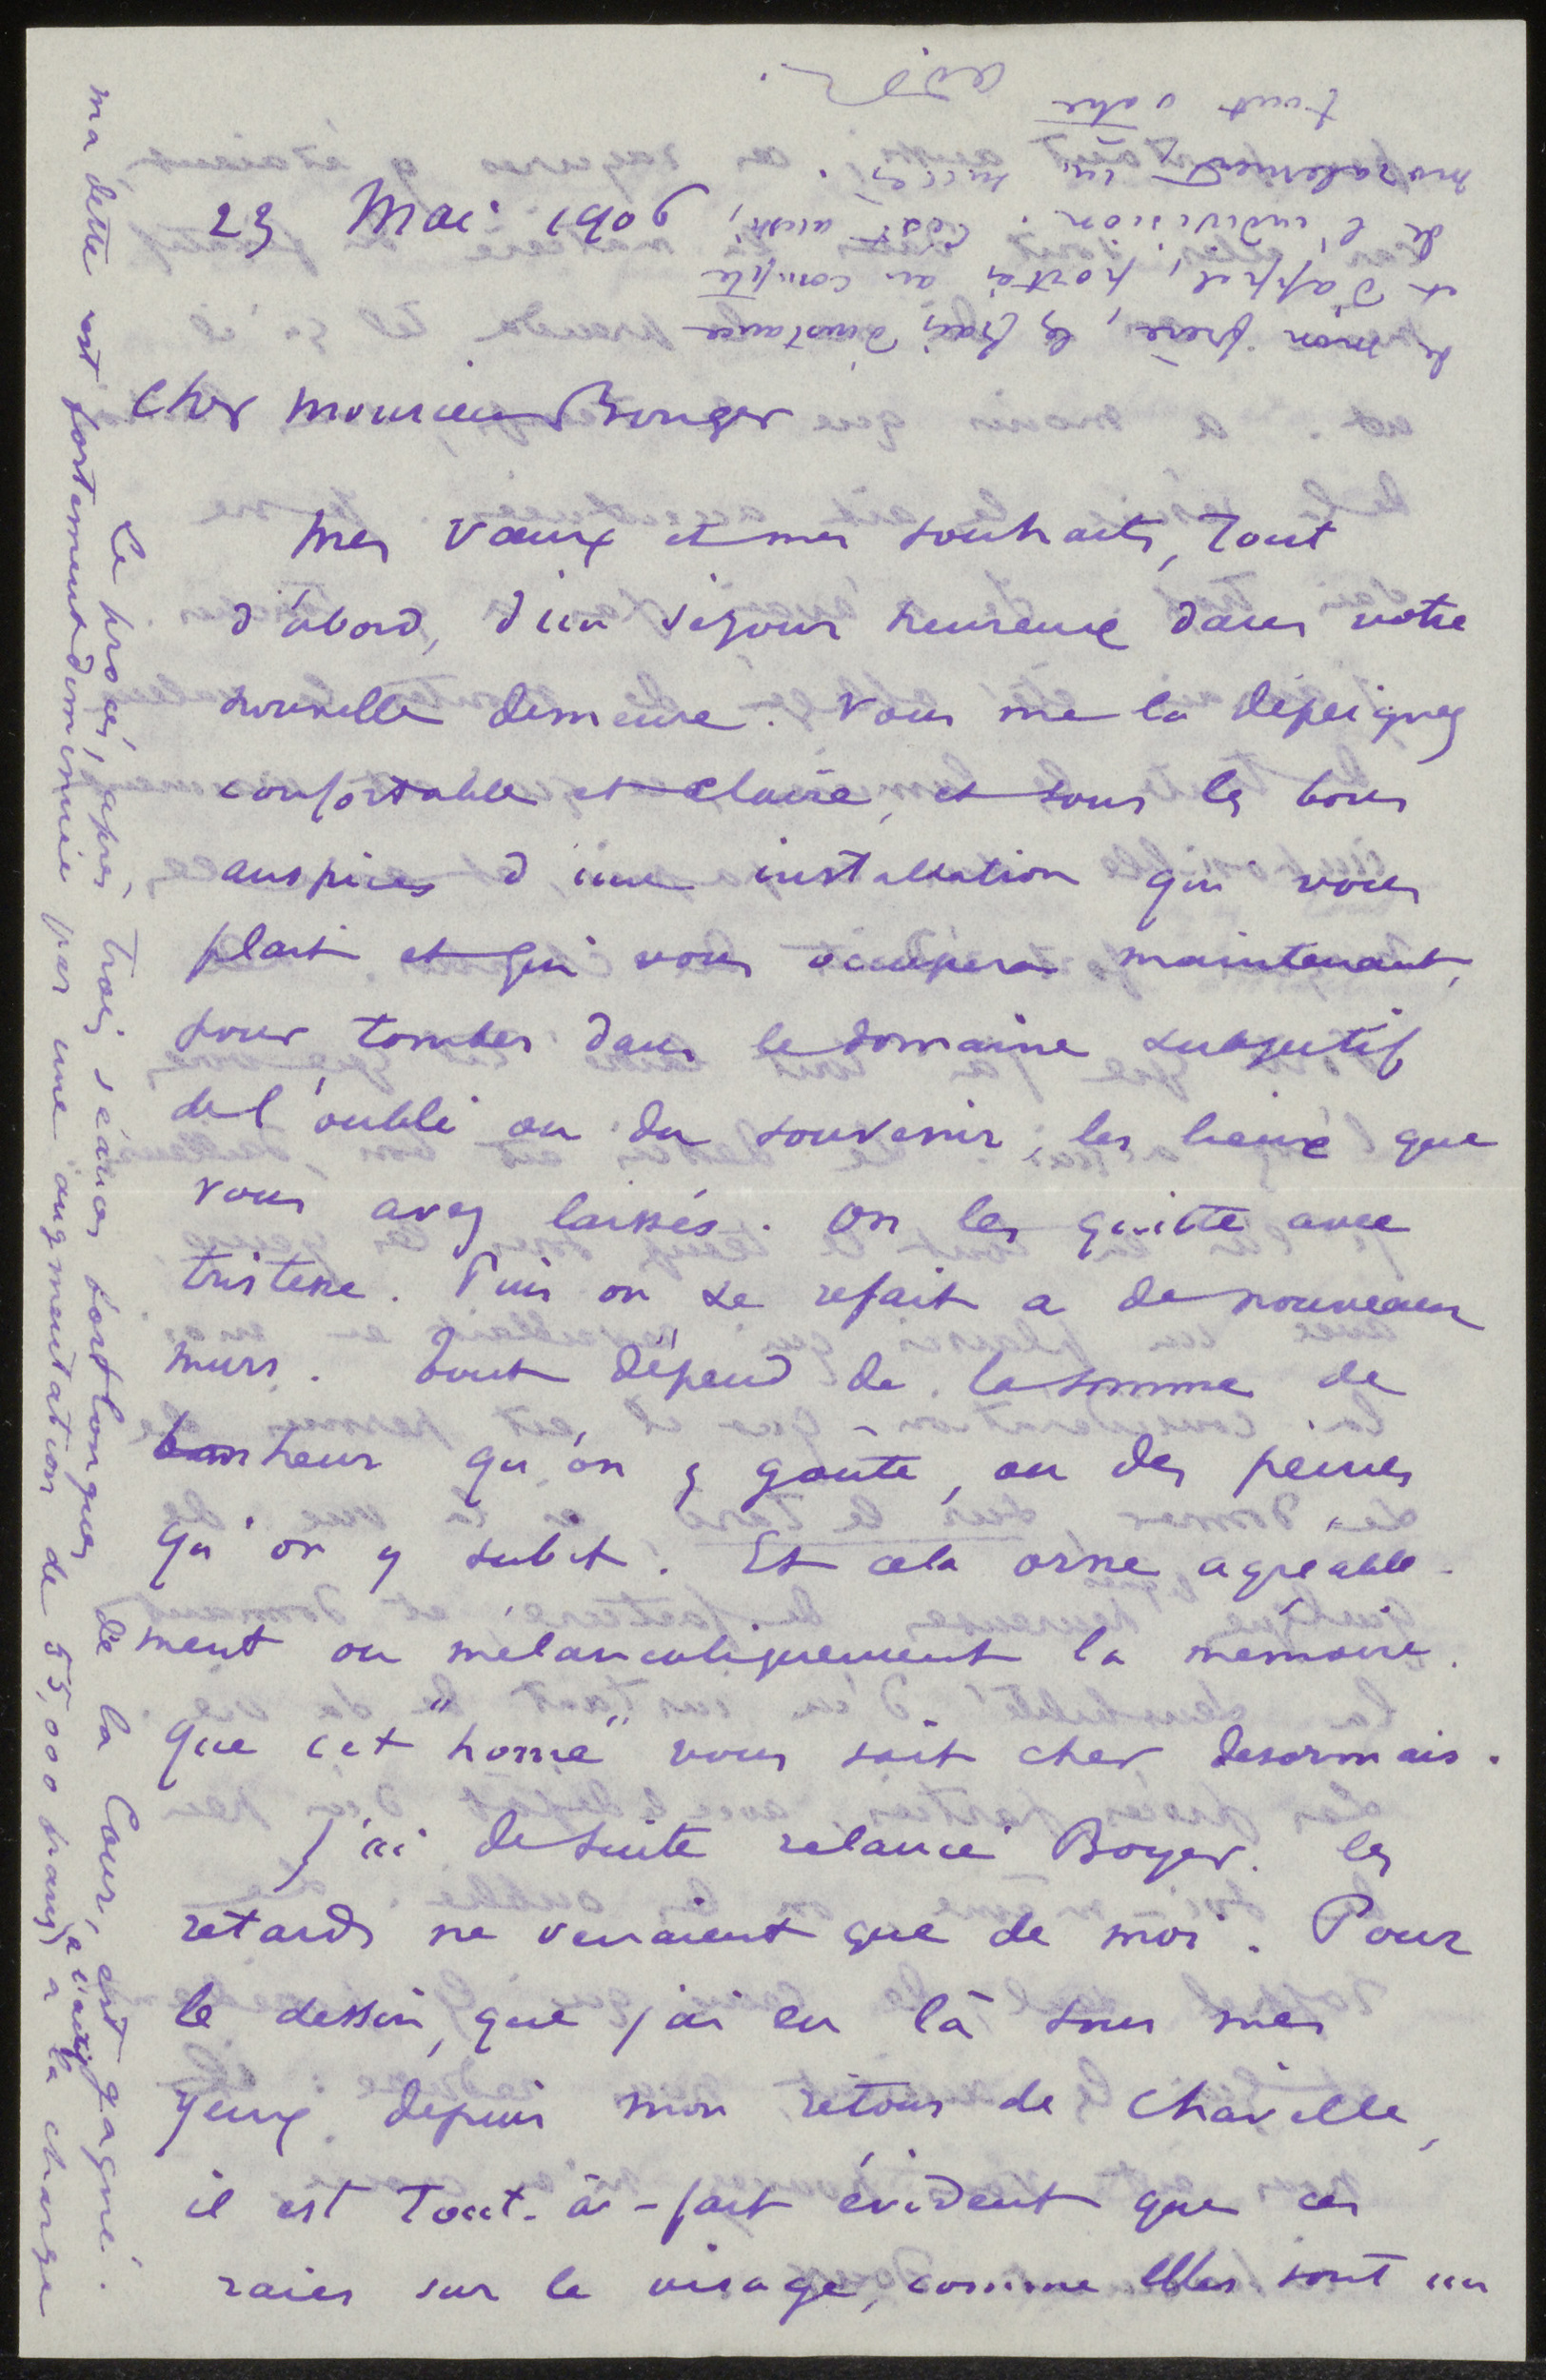 23 Mai 1906
Cher monsieur Bonger
Mes vœux et mes souhaits, tout
d'abord, d'un séjour heureux dans votre
nouvelle demeure. Vous me la dépeignez
confortable et claire, et sous les bons
auspices d'une installation qui vous
plait et qui vous occupera maintenant,
pour tomber dans le domaine subjectif
de l'oubli ou du souvenir, les lieux que
vous avez laissés. On les quitte avec
tristesse. Puis on se refait a de nouveaux
murs. Tout dépend de la somme de
bonheur qu'on y goûte, ou des peines
qu'on y subit. Et cela orne agréable-
ment ou mélancoliquement la mémoire.
Que cet "home" vous soit cher desormais.
J'ai de suite relancé Boyer. les
retards ne venaient que de moi. Pour
le dessin, que j'ai eu là sous mes
yeux depuis mon retour de Chaville,
il est tout-à-fait évident que ces
raies sur le visage, comme elles sont un
Le procès, après trois séances fort longues de la Cour, est gagné.
ma dette est fortement diminuée par une augmentation de 55,000 francs a l'actif a la charge
de mon frère, les frais d'instance
et d'appel, portés au compte
de l'indivision. C'est aussi,
moralement, un succès.
tout votre